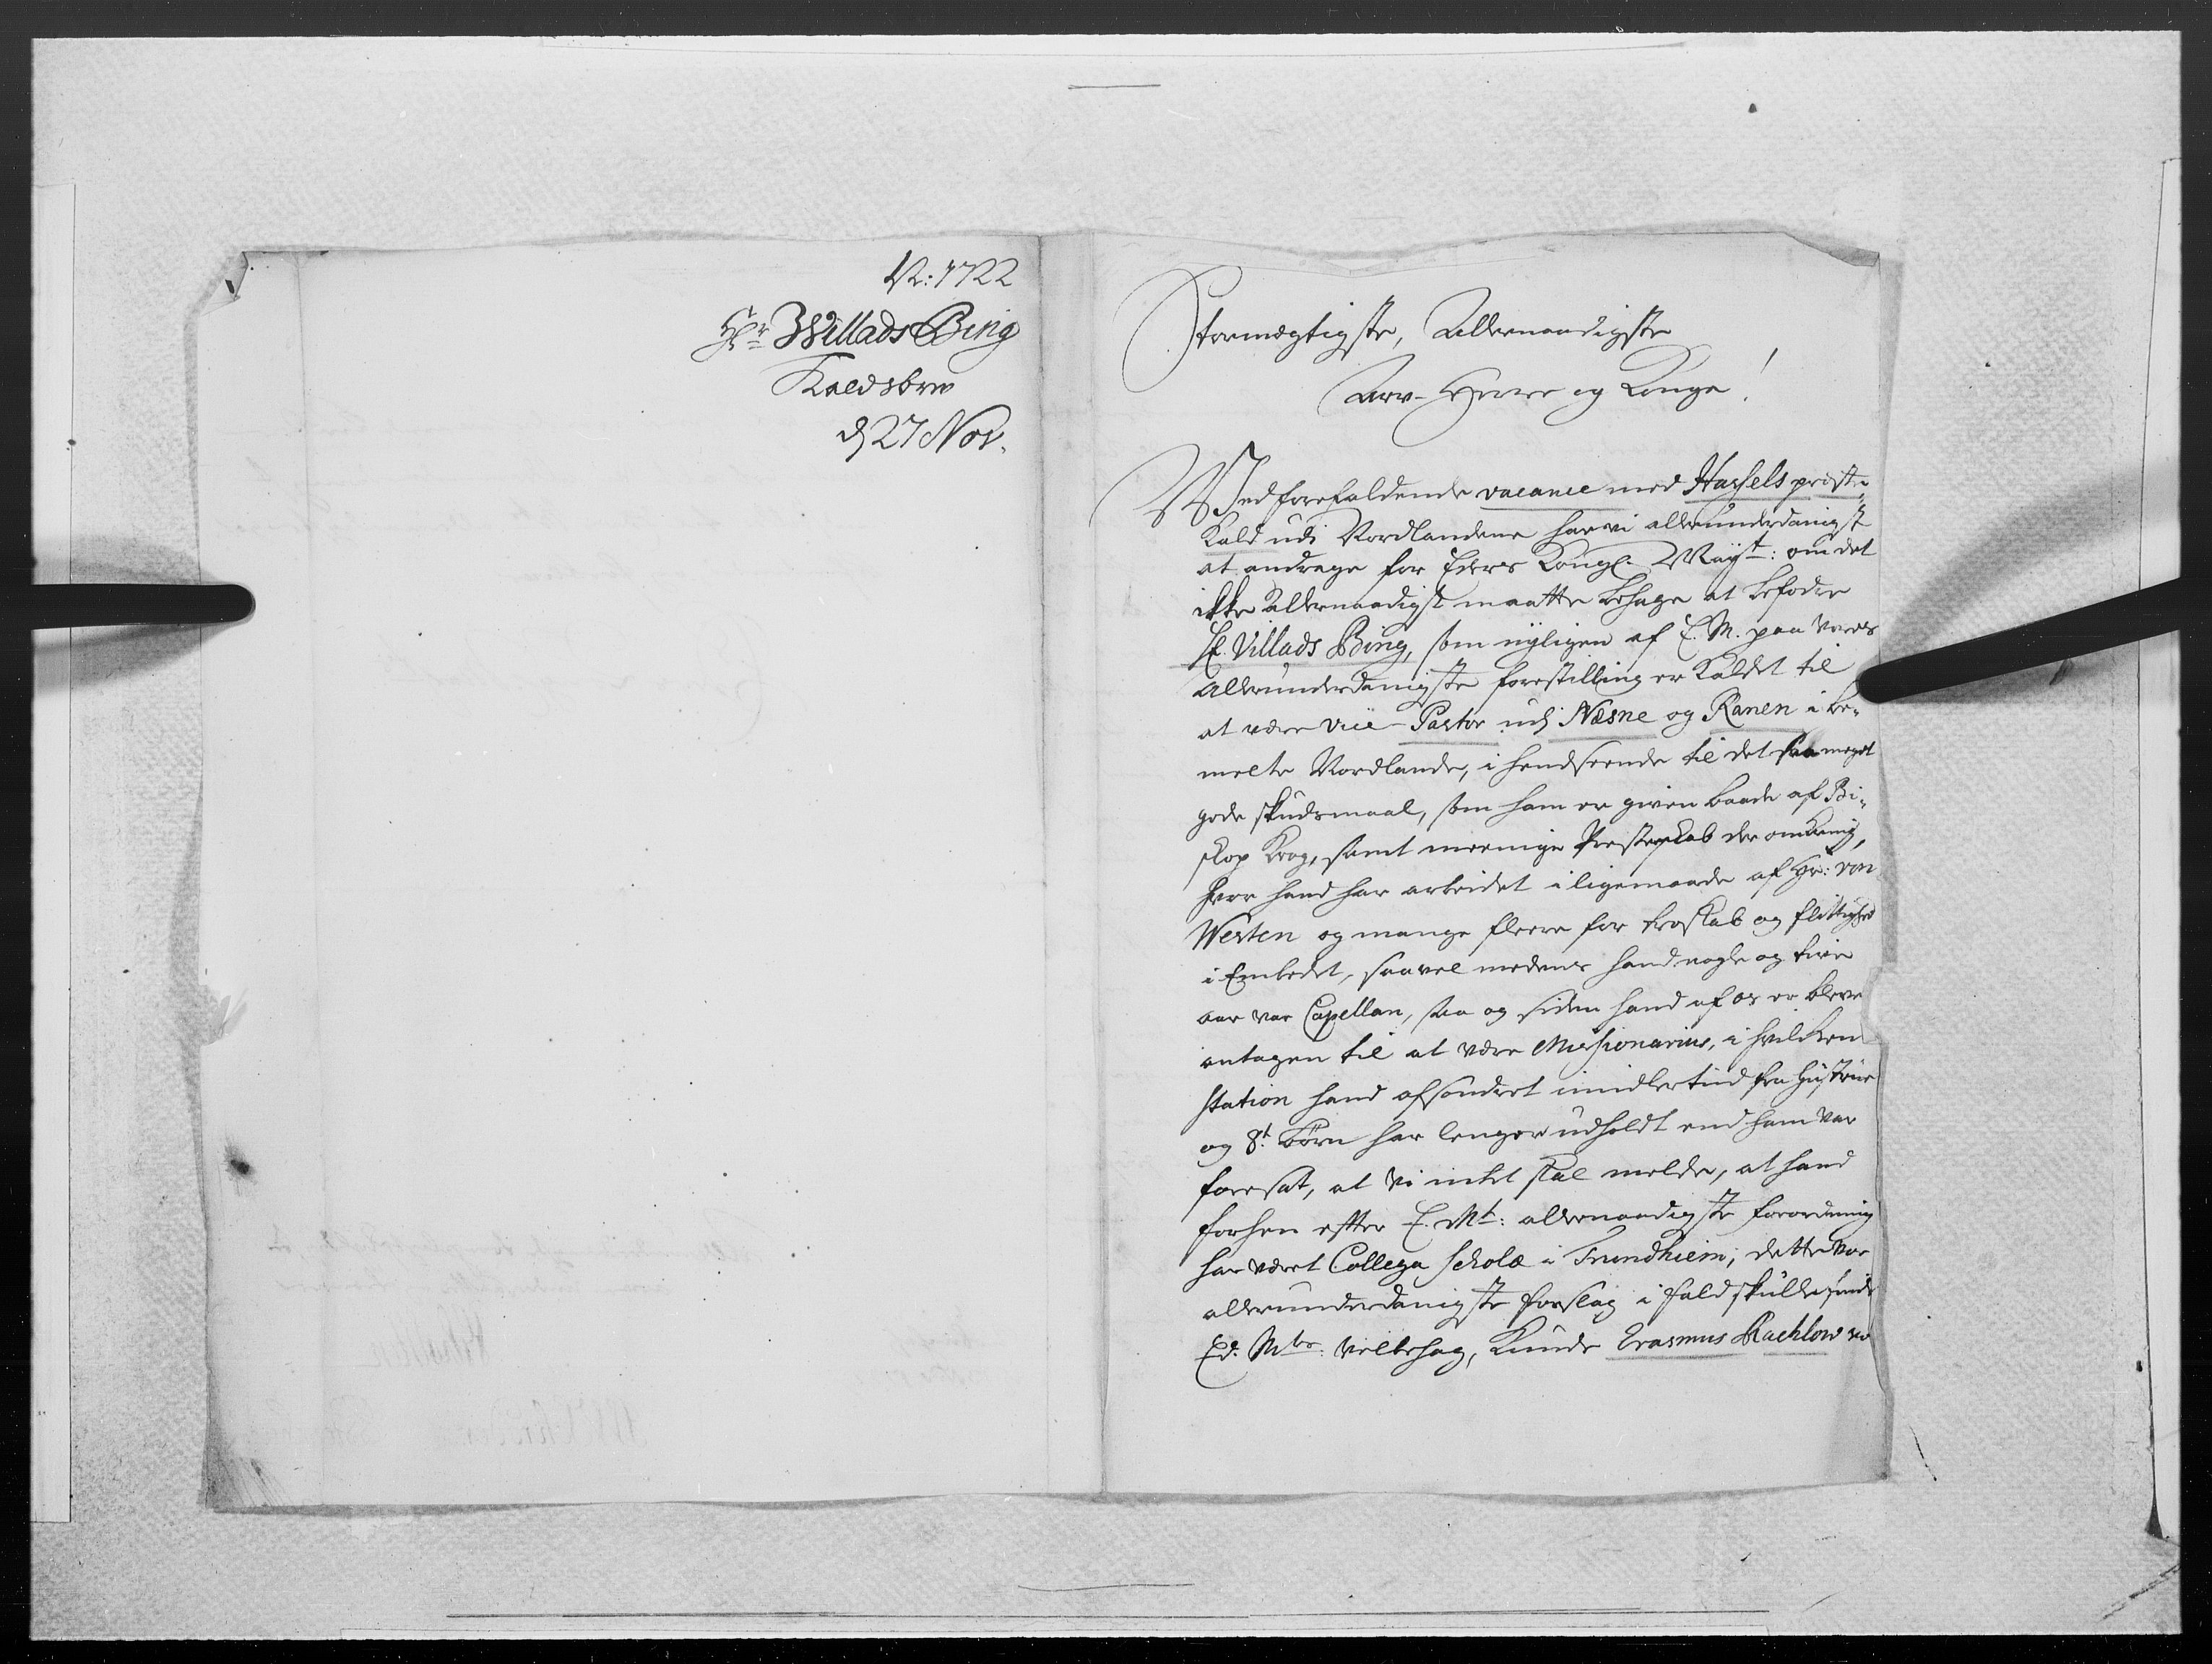 N: 1722
Hr Willads Bing
Kaldsbrev
d 27 Nov.
Stormegtigste, Allernaadigste
Arv-Herre og Konge!
Ved forefaldende vacance med Hassels preste-
Kald udi Nordlandene har vi allerunderdanigst
at andrage for Eders Kongl. Mayt: om det
ikke Allernaadigst maatte behage at befodre
Hr. Villads Bing, som nyligen af E. M. paa vores
allerunderdanigste forestilling er kaldet til
at være vice-Pastor udj Næsne og Ranen i be-
melte Nordlande, i henseende til det saa meget
gode skudsmaal, som ham er given baade af Bi-
skop Krog, samt meenige Presteskab der omkring,
hvor hand har arbeidet iligemaade af Hr: von
Westen og mange fleere for troskab og flittighed
i Embedet, saavel medens hand nogle og tive
aar var Capellan, saa og siden hand af os er bleven
antagen til at være Missionarius, i hvilken
station hand afsondret imidlertiid fra hustrue
og 8t. børn har lenger udholdt end ham var
foresat, at vi intet skal melde, at hand
forhen efter E. Mt: allernaadigste forordning
har været Collega scholæ i Trundhiem; dette vor
allerunderdanigste forslag i fald skulde finde
Ed. Mts: velbehag, kunde Erasmus Rachlow